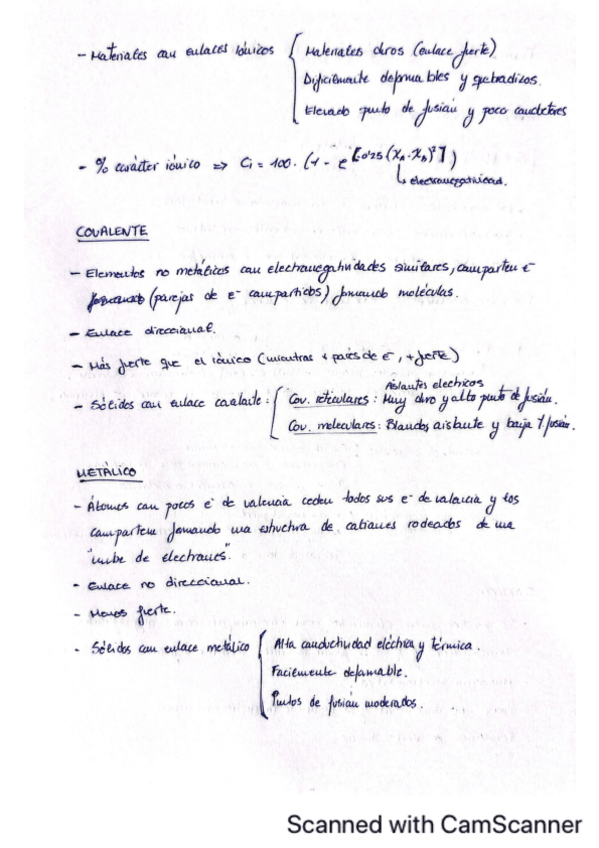 - Materiales con enlaces iónicos { Materiales duros (enlace fuerte)
Dificilmente deformables y quebradizos.
Elevado punto de fusión y poco conductores
- % carácter iónico => Ci = 100 · (1 - e^[-0'25 (XA - XB)²])
↳ electronegatividad.
COVALENTE
- Elementos no metálicos con electronegatividades similares, comparten e-
(parejas de e- compartidos) formando moléculas.
- Enlace direccional.
- Más fuerte que el iónico (mientras + pares de e-, + fuerte)
Aislantes electricos
- Sólidos con enlace covalente: { Cov. reticulares: Muy duro y alto punto de fusión.
Cov. moleculares: Blandos aislante y baja T fusión.
METÁLICO
- Átomos con pocos e- de valencia ceden todos sus e- de valencia y los
comparten formando una estructura de cationes rodeados de una
"nube de electrones".
- Enlace no direccional.
- Menos fuerte.
- Sólidos con enlace metálico { Alta conductividad eléctrica y térmica.
Facilmente deformable.
Puntos de fusión moderados.
Scanned with CamScanner